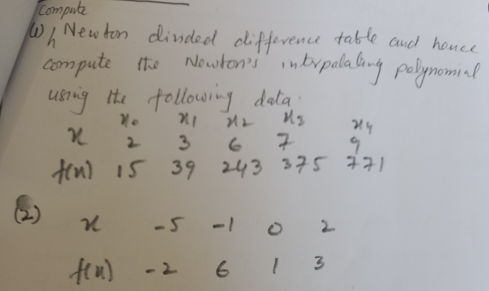 Compute
(1) Newton divided difference table and hence
compute the Newton's interpolating polynomial
using the following data.
x₀ x₁ x₂ x₃ x₄
x 2 3 6 7 9
f(x) 15 39 243 375 771
(2) x -5 -1 0 2
f(x) -2 6 1 3